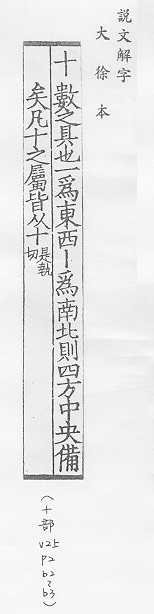 説文解字
大徐本
十 數之具也一爲東西丨爲南北則四方中央備
矣凡十之屬皆从十 是執切
(十部 V2上 P2 b2~b3)